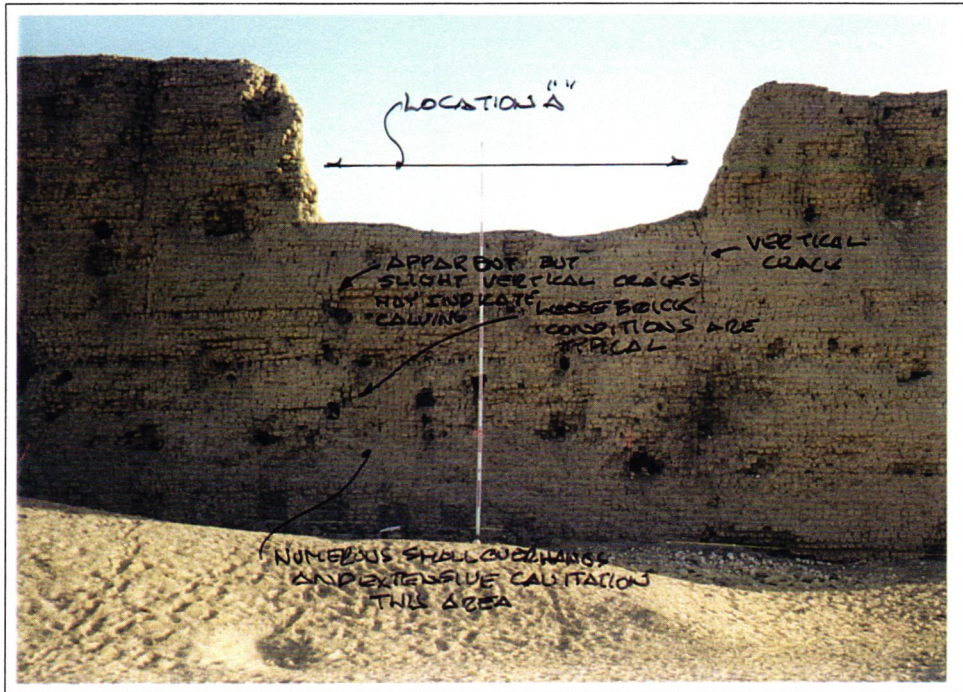 LOCATION "A"
VERTICAL
CRACK
APPARENT BUT
SLIGHT VERTICAL CRACKS
MAY INDICATE
"CALVING"
LOOSE BRICK
CONDITIONS ARE
TYPICAL
NUMEROUS SMALL OVERHANGS
AND EXTENSIVE CAVITATION
THIS AREA